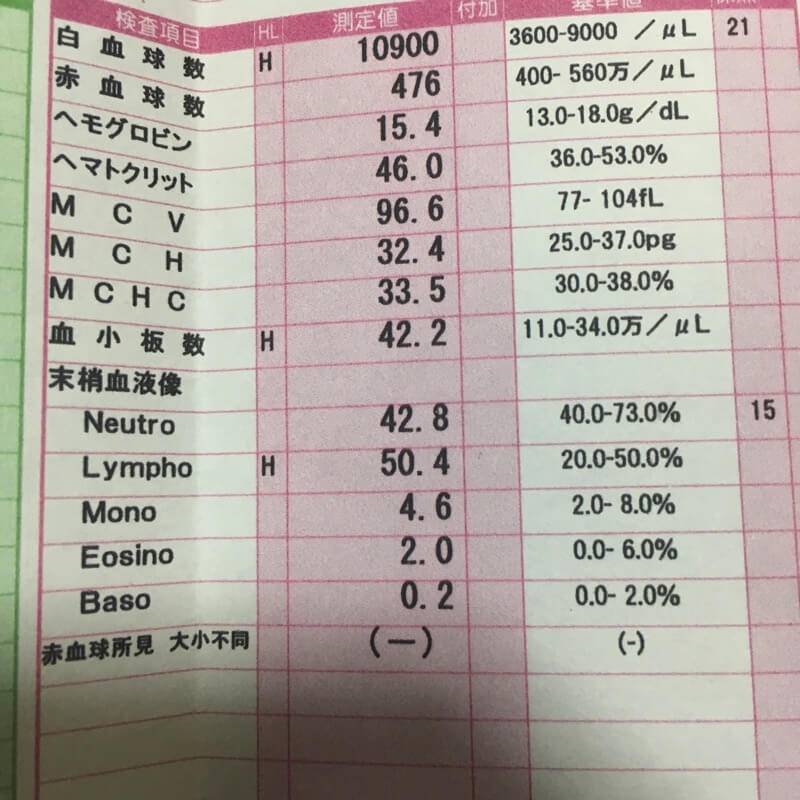 検査項目 HL 測定値 付加 基準値
白血球数 H 10900 3600-9000 /μL 21
赤血球数 476 400- 560万/μL
ヘモグロビン 15.4 13.0-18.0g/dL
ヘマトクリット 46.0 36.0-53.0%
MCV 96.6 77- 104fL
MCH 32.4 25.0-37.0pg
MCHC 33.5 30.0-38.0%
血小板数 H 42.2 11.0-34.0万/μL
末梢血液像
Neutro 42.8 40.0-73.0% 15
Lympho H 50.4 20.0-50.0%
Mono 4.6 2.0- 8.0%
Eosino 2.0 0.0- 6.0%
Baso 0.2 0.0- 2.0%
赤血球所見 大小不同 (-) (-)